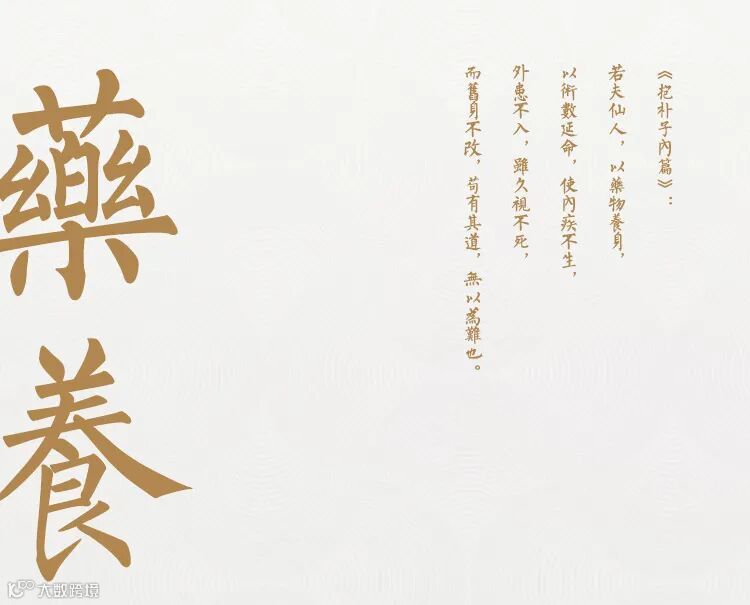 《抱朴子內篇》：
若夫仙人，以藥物養身，
以術數延命，使內疾不生，
外患不入，雖久視不死，
而舊身不改，苟有其道，無以為難也。
藥養
大数跨境